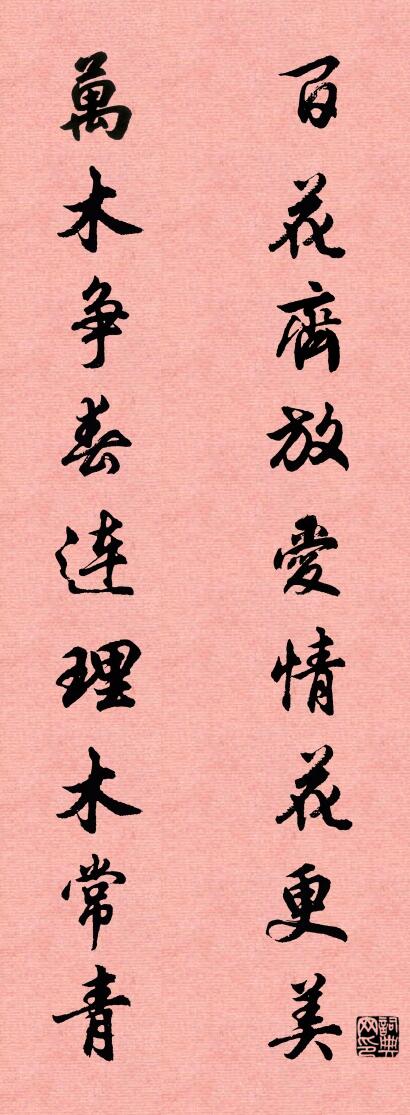 百花齊放愛情花更美
萬木争春連理木常青
詞典网印